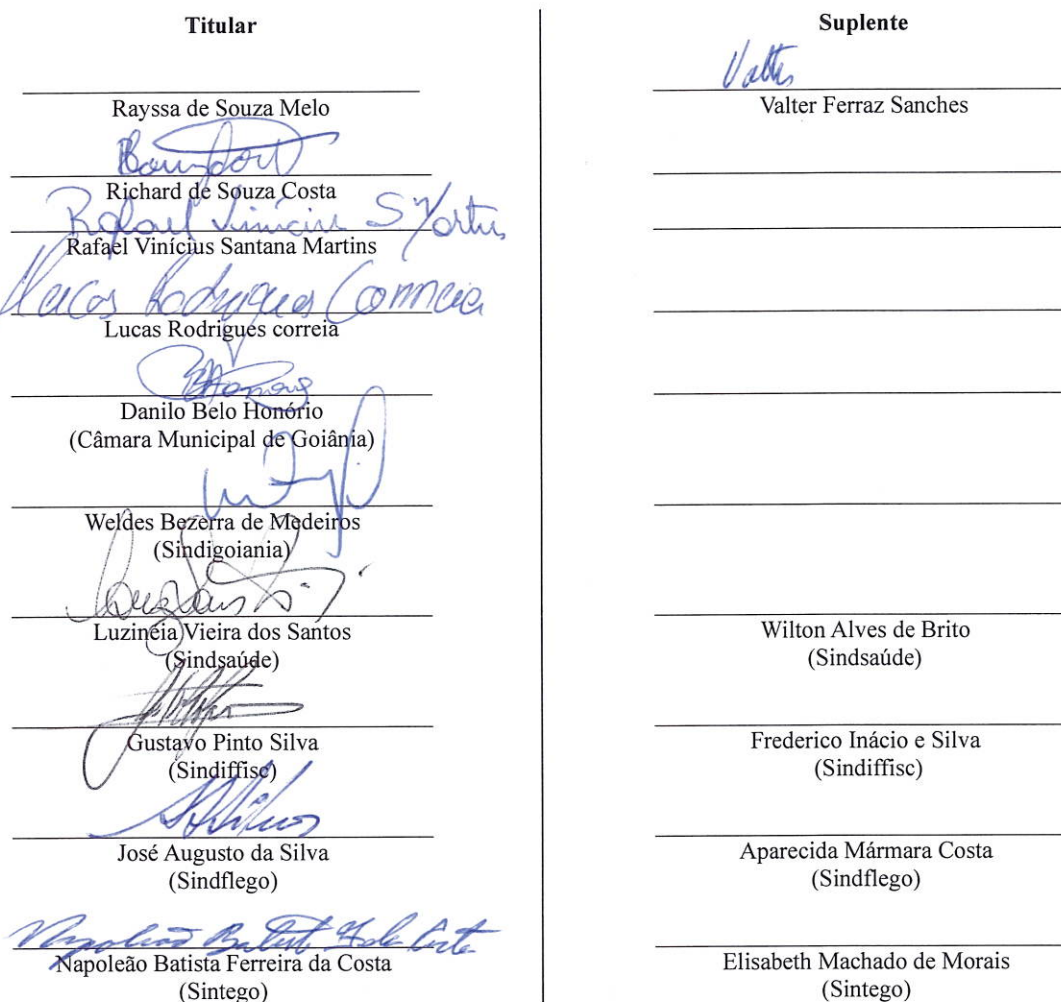 Titular
Rayssa de Souza Melo
Richard de Souza Costa
Rafael Vinicius S Martins
Rafael Vinícius Santana Martins
Lucas Rodrigues Correia
Lucas Rodrigues correia
Danilo Belo Honório
(Câmara Municipal de Goiânia)
Weldes Bezerra de Medeiros
(Sindigoiania)
Luzinéia Vieira dos Santos
(Sindsaúde)
Gustavo Pinto Silva
(Sindiffisc)
José Augusto da Silva
(Sindflego)
Napoleão Batista F da Costa
Napoleão Batista Ferreira da Costa
(Sintego)
Suplente
Valter
Valter Ferraz Sanches
Wilton Alves de Brito
(Sindsaúde)
Frederico Inácio e Silva
(Sindiffisc)
Aparecida Mármara Costa
(Sindflego)
Elisabeth Machado de Morais
(Sintego)